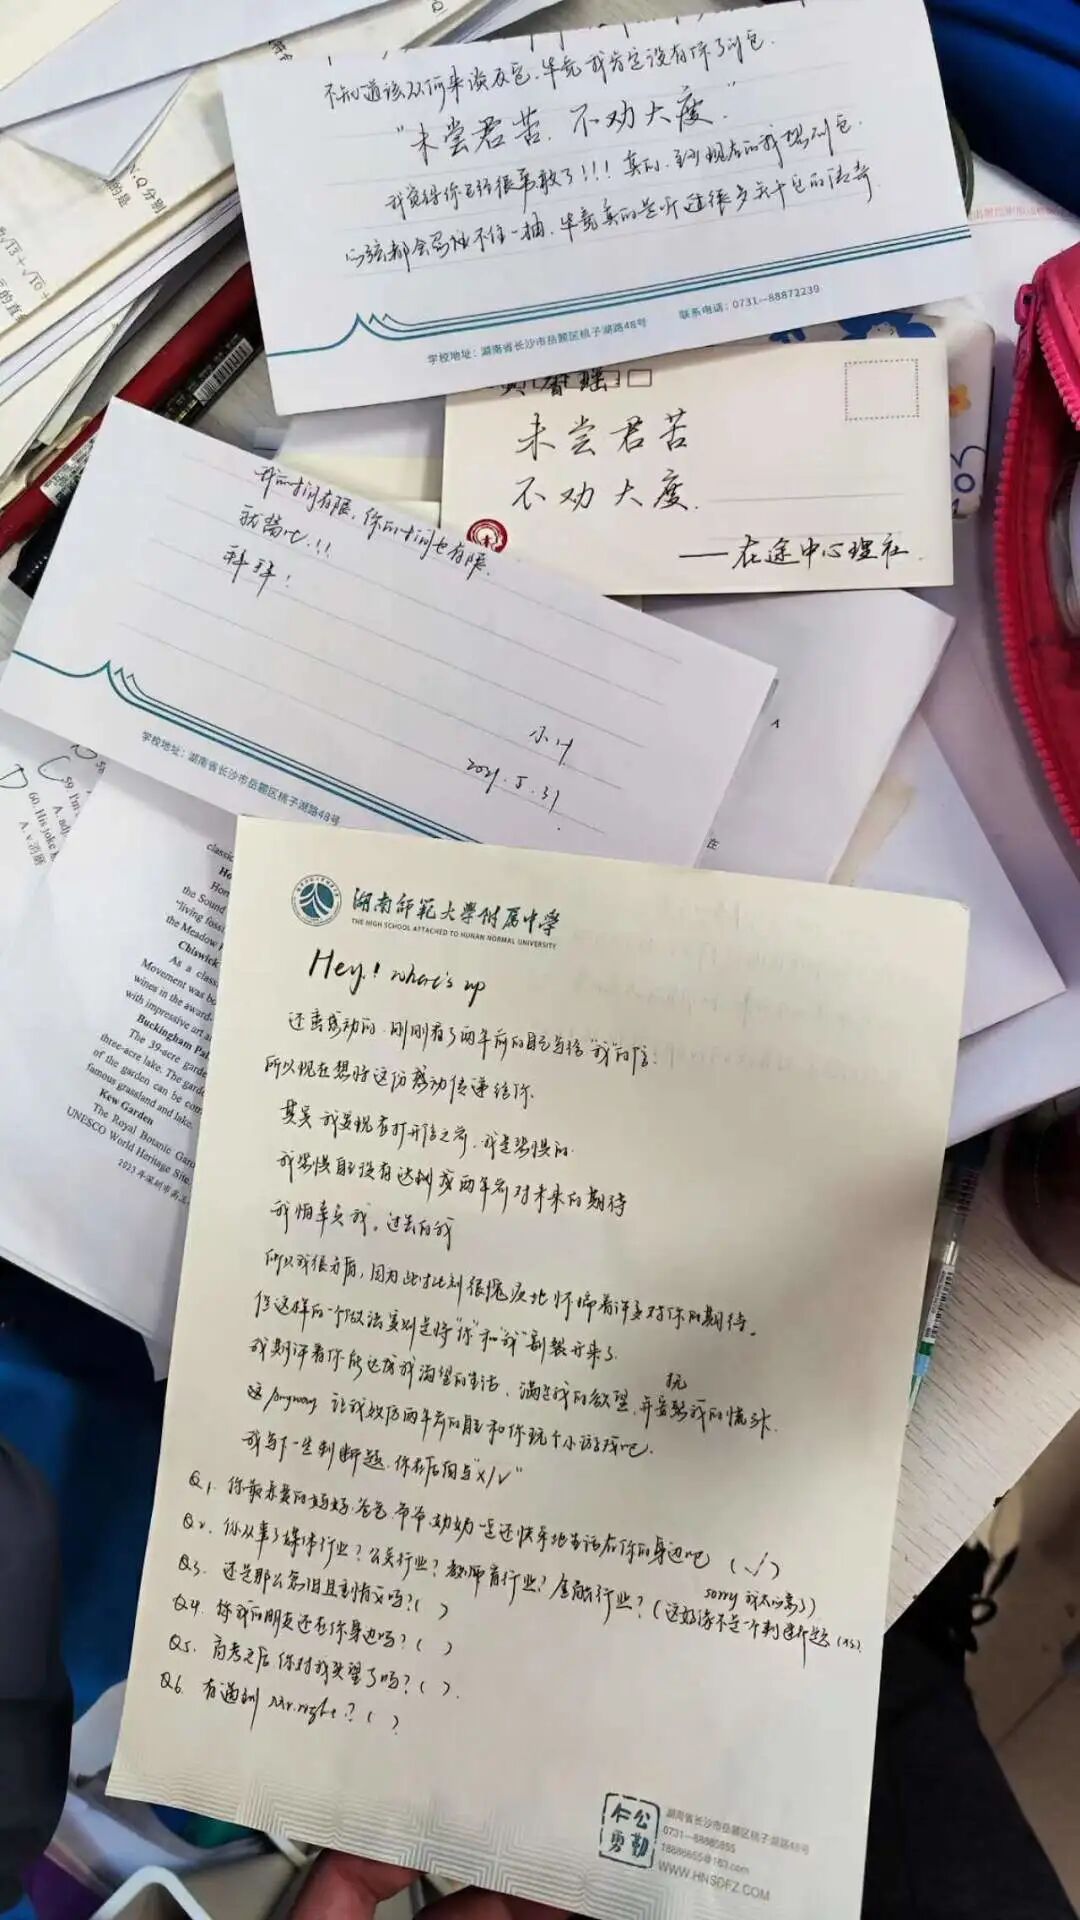 不知道该从何来谈及包，毕竟我肯定没有你了解包．
“未尝君苦．不劝大度．”
我觉得你已经很勇敢了!!! 真的．到现在的我想到包．
心弦都会忍不住一抽．毕竟真的是听过很多关于包的传奇
学校地址：湖南省长沙市岳麓区桃子湖路48号
联系电话：0731—88872239
未尝君苦
不劝大度．
——在途中心理社．
我的时间有限，你的时间也有限．
就酱吧．!!!
拜拜!
小叶
2021.5.31
学校地址：湖南省长沙市岳麓区桃子湖路48号
59. I'm
A. adj
60. His joke
A. v.消磨
the Sound
"living foss
the Meadow
Chiswick
As a class
Movement was be
wines in the award-
with impressive art a
Buckingham Pal
The 39-acre garde
three-acre lake. The garde
of the garden can be com
famous grassland and lake.
Kew Garden
The Royal Botanic Gard
UNESCO World Heritage Site.
湖南师范大学附属中学
THE HIGH SCHOOL ATTACHED TO HUNAN NORMAL UNIVERSITY
Hey! what's up
还蛮感动的，刚刚看了两年前的自己写给“我”的信!
所以现在想将这份感动传递给你．
其实我发现在打开信之前，我是恐慌的．
我恐慌自己没有达到我两年前对未来的期待
我怕辜负我，过去的我
所以我很矛盾，因为此时此刻很愧疚地怀揣着许多对你的期待。
但这样的一个做法实则是将“你”和“我”割裂开来了．
我期许着你能达成我渴望的生活，满足我的欲望，并安抚我的慌张．
anyway 让我效仿两年前的自己和你玩个小游戏吧．
我写下一些判断题，你在后面写“×/√”
Q1. 你最亲爱的妈妈、爸爸、爷爷、奶奶一定还快乐地生活在你的身边吧 (√)
Q2. 你从事了媒体行业？公关行业？教师育行业？金融行业？(sorry 我太心急了) (这好像不是一个判断题
Q3. 还是那么
Q4. 你我的朋友还在你身边吗？( )
Q5. 高考之后，你对我失望了吗？( ).
Q6. 有遇到 Mr.right？( )
公勤仁勇
湖南省长沙市岳麓区桃子湖路48号
WWW.HNSDFZ.COM